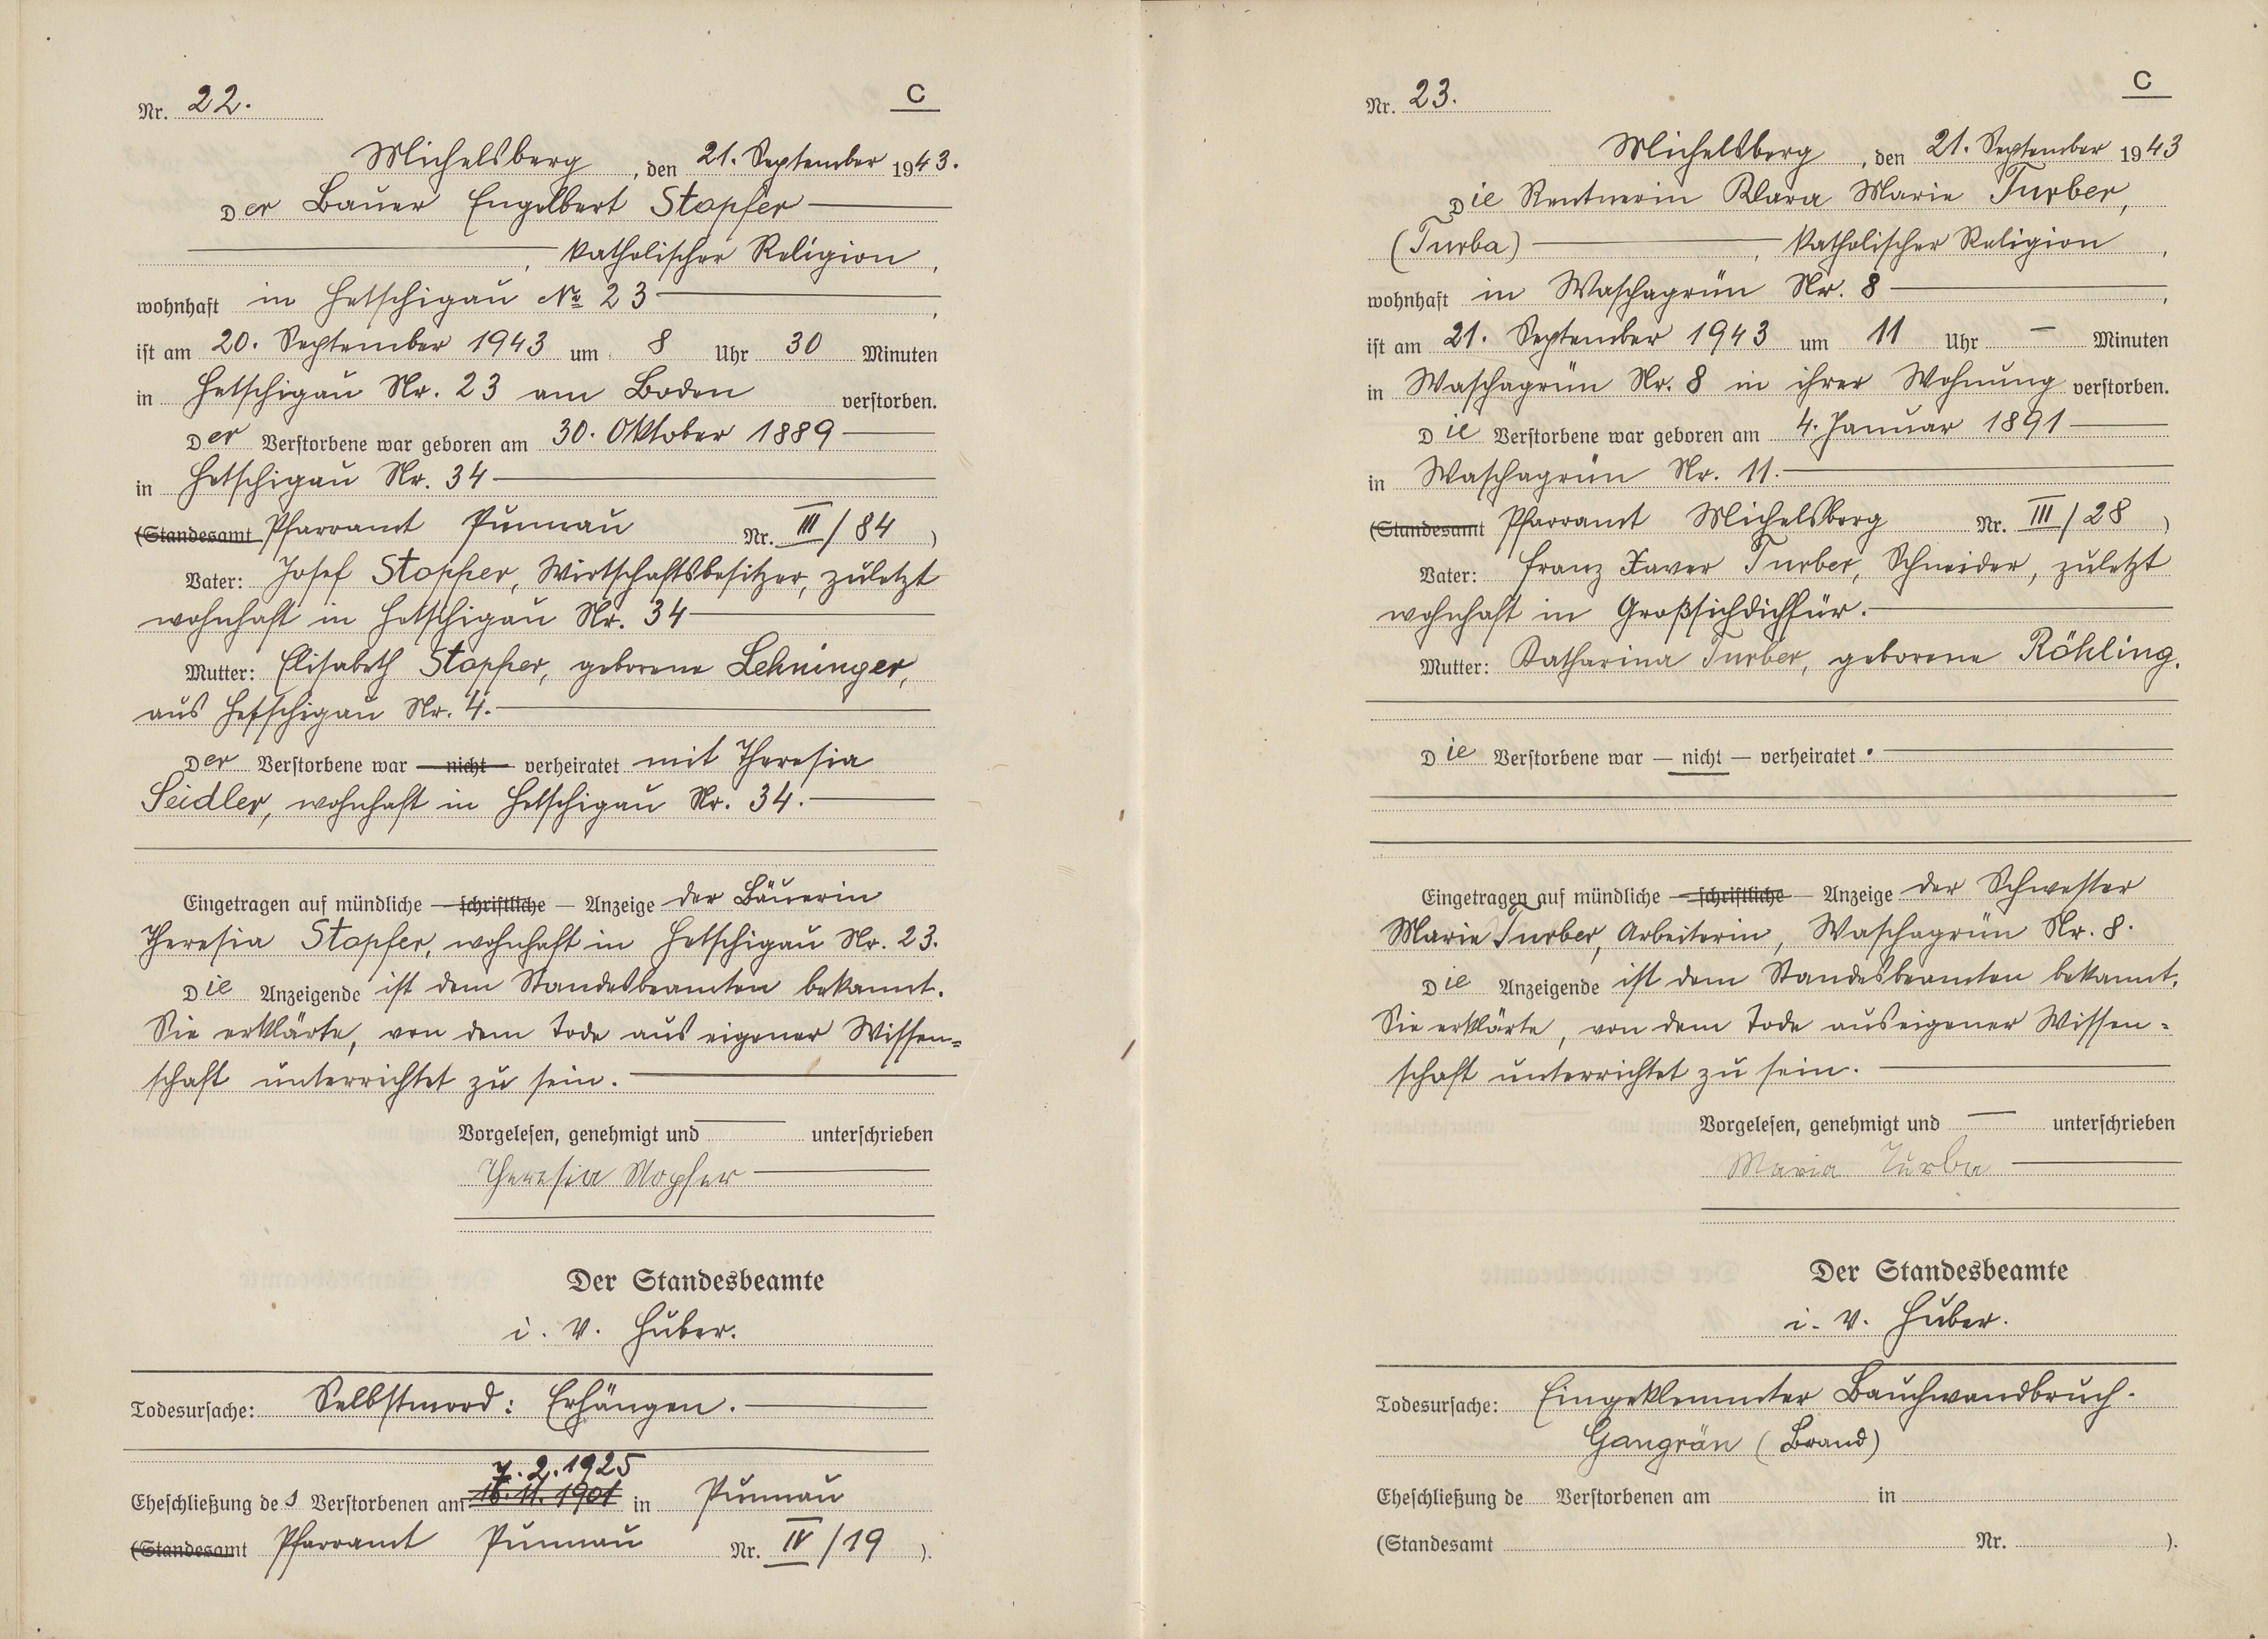 Nr. 22.
C
Michelsberg, den 21. September 1943.
Der Bauer Engelbert Stopfer
, katholischer Religion,
wohnhaft in Hetschigau No 23,
ist am 20. September 1943 um 8 Uhr 30 Minuten
in Hetschigau Nr. 23 am Boden verstorben.
Der Verstorbene war geboren am 30. Oktober 1889
in Hetschigau Nr. 34
(Standesamt Pfarramt Punnau Nr. III/84)
Vater: Josef Stopfer, Wirtschaftsbesitzer, zuletzt
wohnhaft in Hetschigau Nr. 34
Mutter: Elisabeth Stopfer, geborene Lehninger,
aus Hetschigau Nr. 4.
Der Verstorbene war — nicht — verheiratet mit Theresia
Seidler, wohnhaft in Hetschigau Nr. 34.
Eingetragen auf mündliche — schriftliche — Anzeige der Bäuerin
Theresia Stopfer, wohnhaft in Hetschigau Nr. 23.
Die Anzeigende ist dem Standesbeamten bekannt.
Sie erklärte, von dem Tode aus eigener Wissen=
schaft unterrichtet zu sein.
Vorgelesen, genehmigt und — unterschrieben
Theresia Stopfer
Der Standesbeamte
i. V. Huber.
Todesursache: Selbstmord: Erhängen.
7. 2. 1925
Eheschließung des Verstorbenen am 18. 11. 1901 in Punnau
(Standesamt Pfarramt Punnau Nr. IV/19).
Nr. 23.
C
Michelsberg, den 21. September 1943
Die Rentnerin Klara Marie Turber,
(Turba), katholischer Religion,
wohnhaft in Waschagrün Nr. 8,
ist am 21. September 1943 um 11 Uhr — Minuten
in Waschagrün Nr. 8 in ihrer Wohnung verstorben.
Die Verstorbene war geboren am 4. Januar 1891
in Waschagrün Nr. 11.
(Standesamt Pfarramt Michelsberg Nr. III/28)
Vater: Franz Xaver Turber, Schneider, zuletzt
wohnhaft in Großsichdichfür.
Mutter: Katharina Turber, geborene Röhling.
Die Verstorbene war — nicht — verheiratet.
Eingetragen auf mündliche — schriftliche — Anzeige der Schwester
Marie Turber, Arbeiterin, Waschagrün Nr. 8.
Die Anzeigende ist dem Standesbeamten bekannt.
Sie erklärte, von dem Tode aus eigener Wissen=
schaft unterrichtet zu sein.
Vorgelesen, genehmigt und — unterschrieben
Maria Turba
Der Standesbeamte
i. V. Huber.
Todesursache: Eingeklemmter Bauchwandbruch.
Gangrän (Brand)
Eheschließung de Verstorbenen am in
(Standesamt Nr. ).